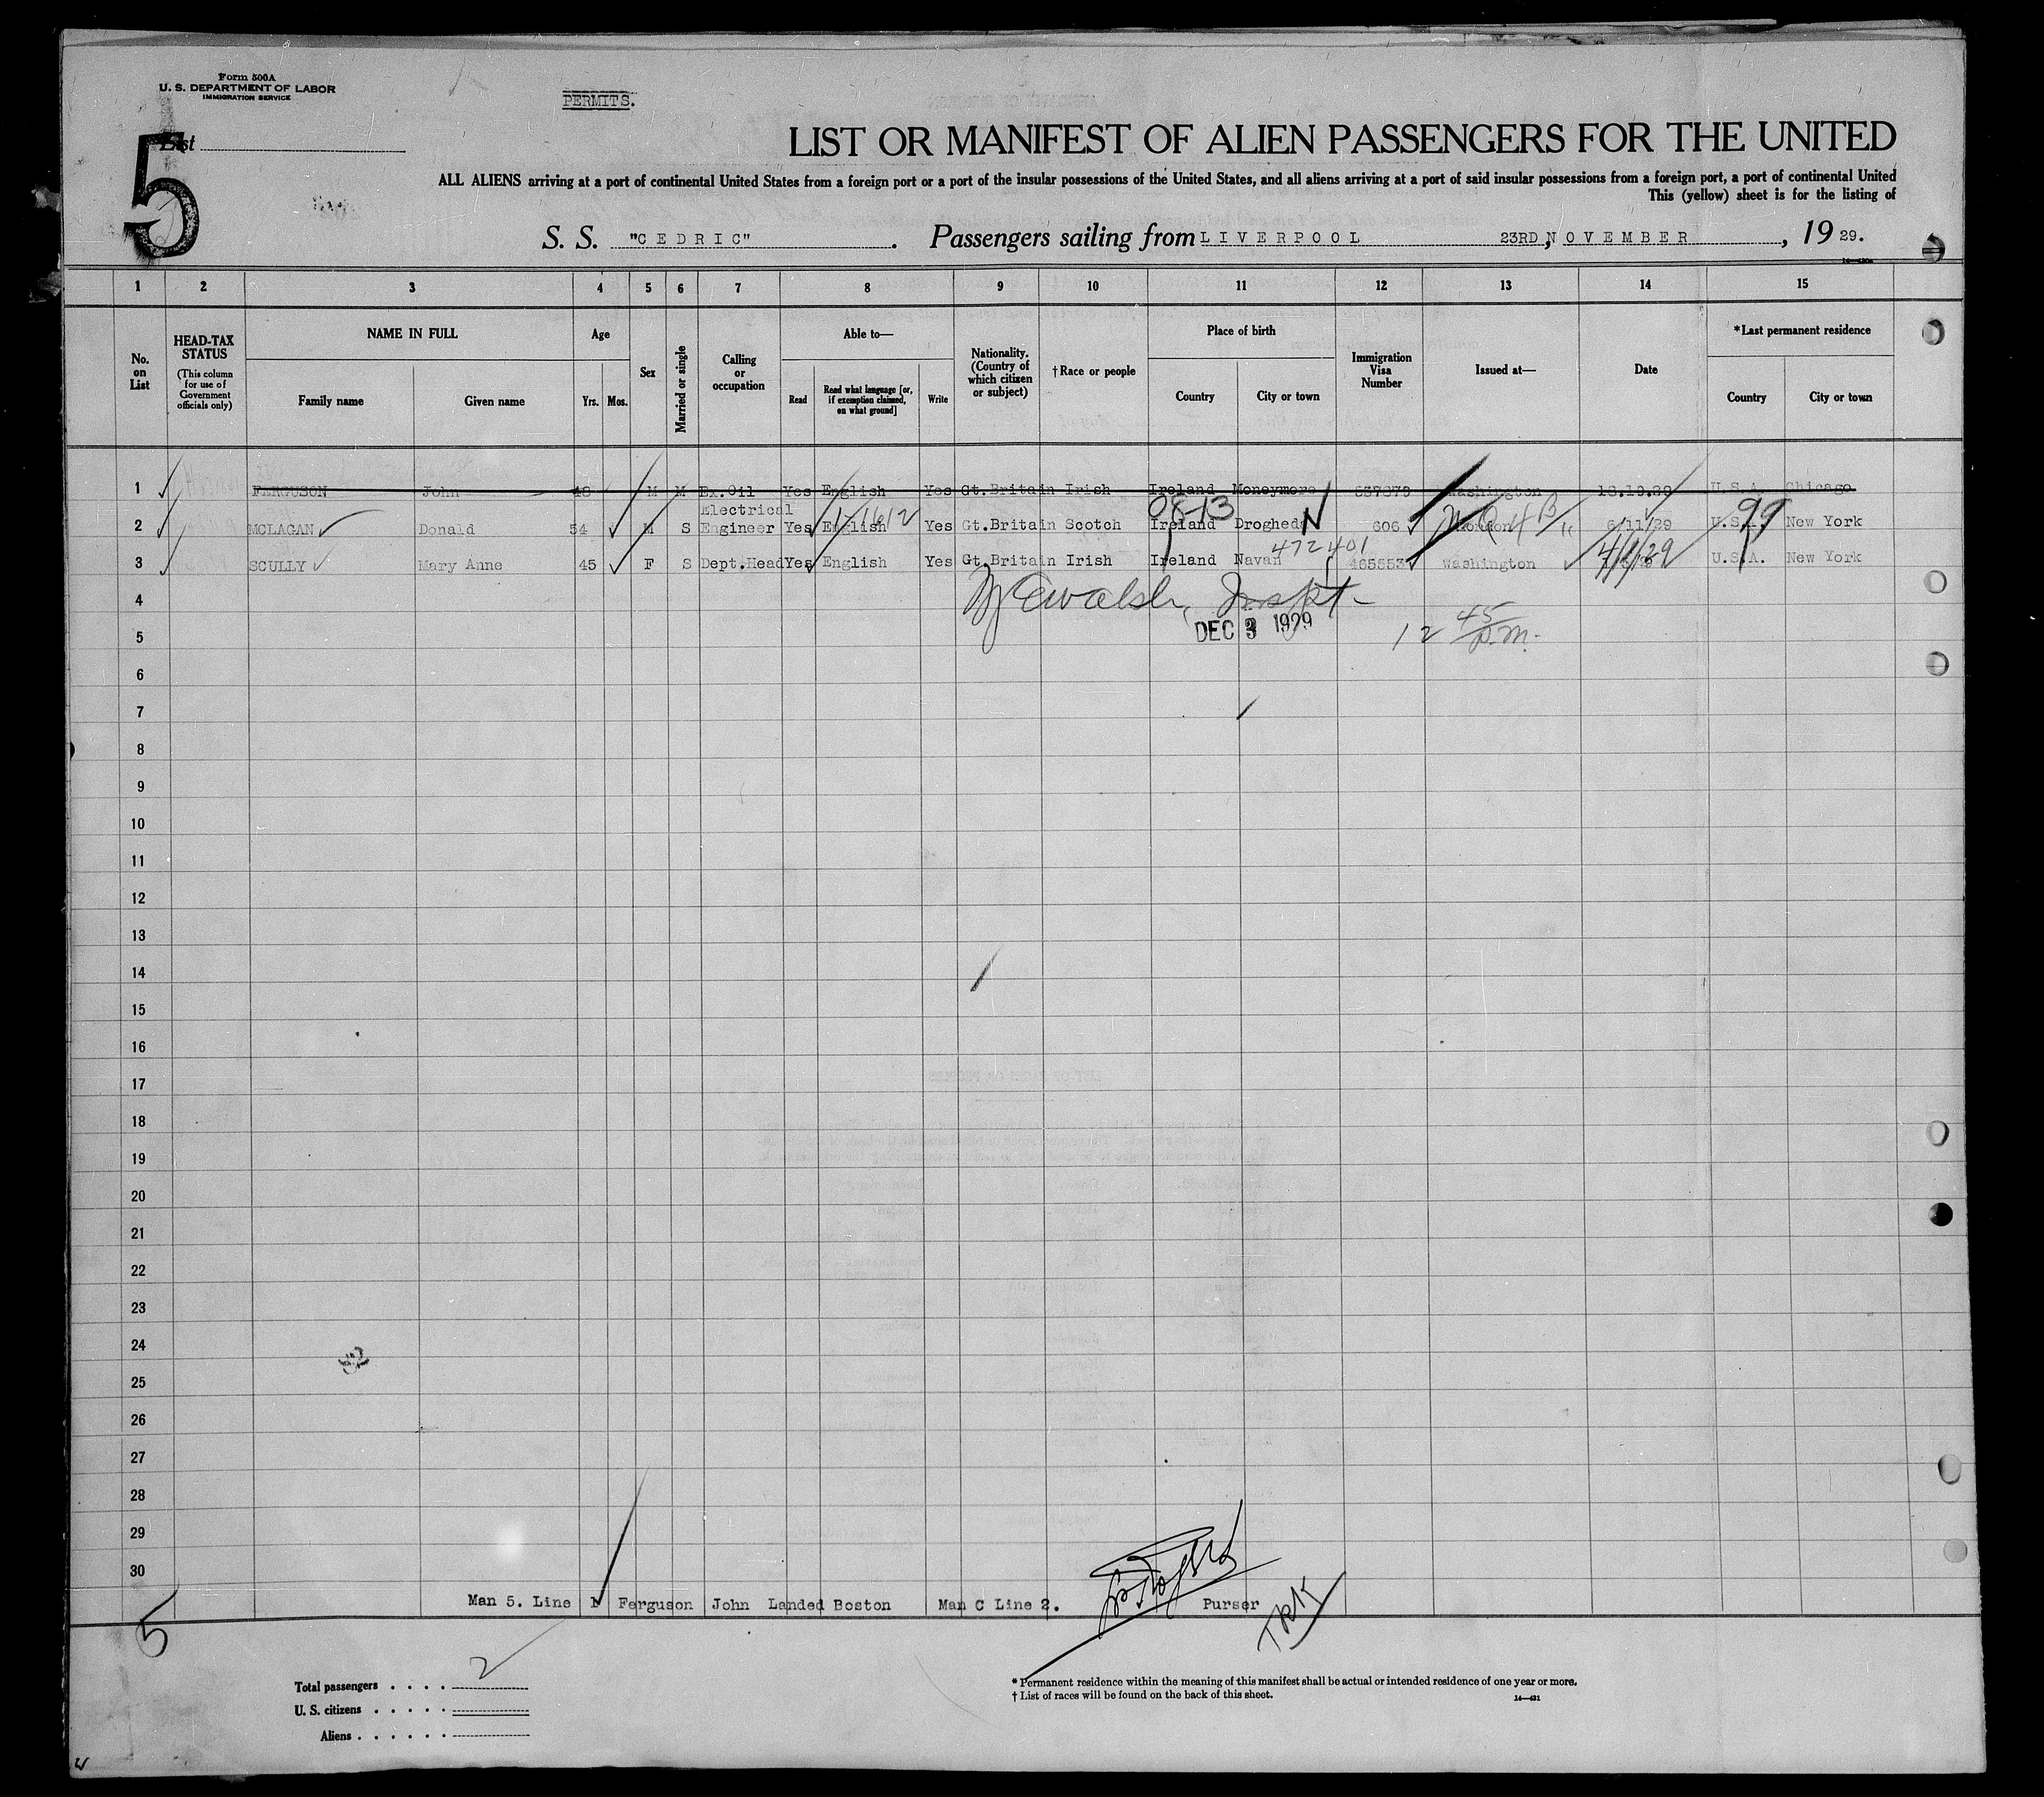 Form 500A
U. S. DEPARTMENT OF LABOR
IMMIGRATION SERVICE
PERMITS.
List
5
LIST OR MANIFEST OF ALIEN PASSENGERS FOR THE UNITED
ALL ALIENS arriving at a port of continental United States from a foreign port or a port of the insular possessions of the United States, and all aliens arriving at a port of said insular possessions from a foreign port, a port of continental United
This (yellow) sheet is for the listing of
S. S. "CEDRIC" . Passengers sailing from LIVERPOOL 23RD, NOVEMBER , 19 29.
1 2 3 4 5 6 7 8 9 10 11 12 13 14 15
No. on List
HEAD-TAX STATUS (This column for use of Government officials only)
NAME IN FULL
Family name Given name
Age
Yrs. Mos.
Sex
Married or single
Calling or occupation
Able to—
Read Read what language [or, if exemption claimed, on what ground] Write
Nationality. (Country of which citizen or subject)
† Race or people
Place of birth
Country City or town
Immigration Visa Number
Issued at—
Date
* Last permanent residence
Country City or town
1 FERGUSON John 48 M M Ex.Oil Yes English Yes Gt.Britain Irish Ireland Moneymore Washington U.S.A. Chicago
2 MCLAGAN Donald 54 M S Electrical Engineer Yes English Yes Gt.Britain Scotch Ireland Drogheda 606 London 6/11/29 U.S.A. New York
3 SCULLY Mary Anne 45 F S Dept.Head Yes English Yes Gt.Britain Irish Ireland Navan 465553 Washington 4/1/29 U.S.A. New York
0813
N
99
472401
Walsh, Inspt-
DEC 3 1929
12 45 p.m.
4
5
6
7
8
9
10
11
12
13
14
15
16
17
18
19
20
21
22
23
24
25
26
27
28
29
30
Man 5. Line 1 Ferguson John Landed Boston Man C Line 2. Purser
5
TRK
Total passengers . . . . 2
U. S. citizens . . . . .
Aliens . . . . . .
* Permanent residence within the meaning of this manifest shall be actual or intended residence of one year or more.
† List of races will be found on the back of this sheet.
14—431